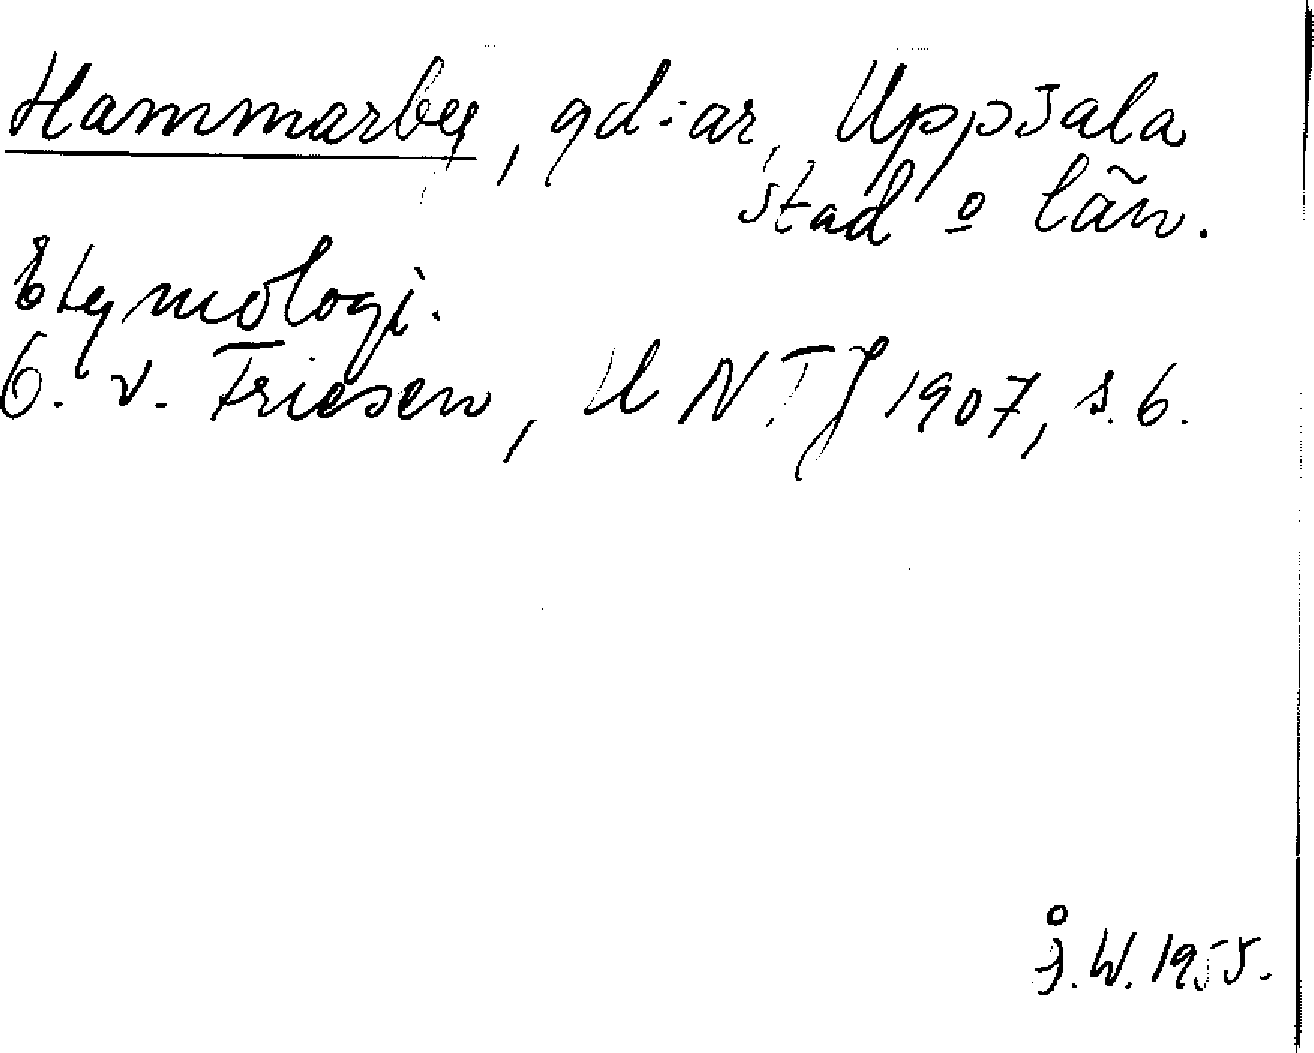 Hammarby, gd:ar, Uppsala
stad o län.
Etymologi.
O. v. Friesen, UNTJ 1907, s. 6.
Å. W. 1955.